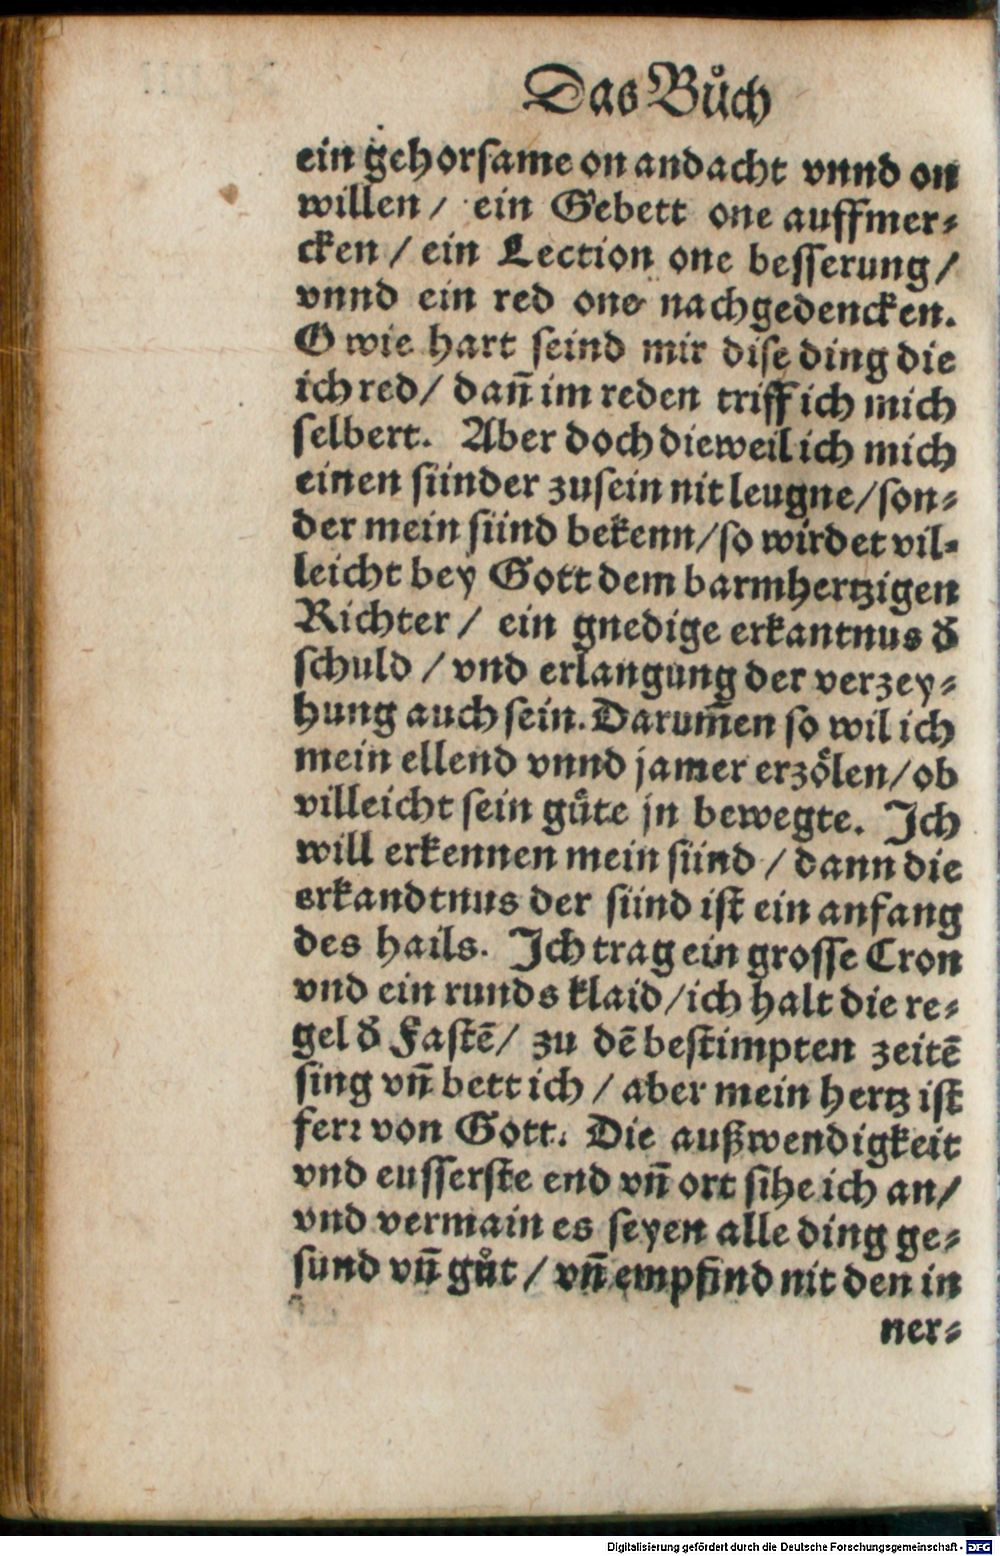 Das Bůch
ein gehorsame on andacht vnnd on
willen / ein Gebett one auffmer⸗
cken / ein Lection one besserung /
vnnd ein red one nachgedencken.
O wie hart seind mir dise ding die
ich red / dañ im reden triff ich mich
selbert. Aber doch dieweil ich mich
einen sünder zusein nit leugne / son⸗
der mein sünd bekenn / so wirdet vil⸗
leicht bey Gott dem barmhertzigen
Richter / ein gnedige erkantnus ð
schuld / vnd erlangung der verzey⸗
hung auch sein. Darum̃en so wil ich
mein ellend vnnd jamer erzoͤlen / ob
villeicht sein guͤte jn bewegte. Ich
will erkennen mein sünd / dann die
erkandtnus der sünd ist ein anfang
des hails. Ich trag ein grosse Cron
vnd ein runds klaid / ich halt die re⸗
gel ð Fastẽ / zu dẽ bestimpten zeitẽ
sing vñ bett ich / aber mein hertz ist
ferꝛ von Gott. Die außwendigkeit
vnd eusserste end vñ ort sihe ich an /
vnd vermain es seyen alle ding ge⸗
sund vñ gůt / vñ empfind nit den in
ner⸗
Digitalisierung gefördert durch die Deutsche Forschungsgemeinschaft - DFG